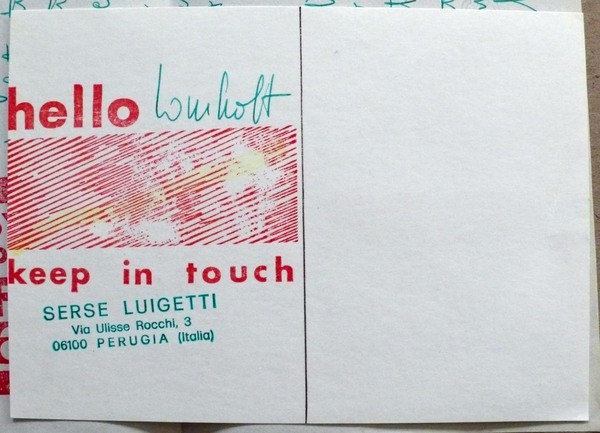 hello Lomholt
keep in touch
SERSE LUIGETTI
Via Ulisse Rocchi, 3
06100 PERUGIA (Italia)